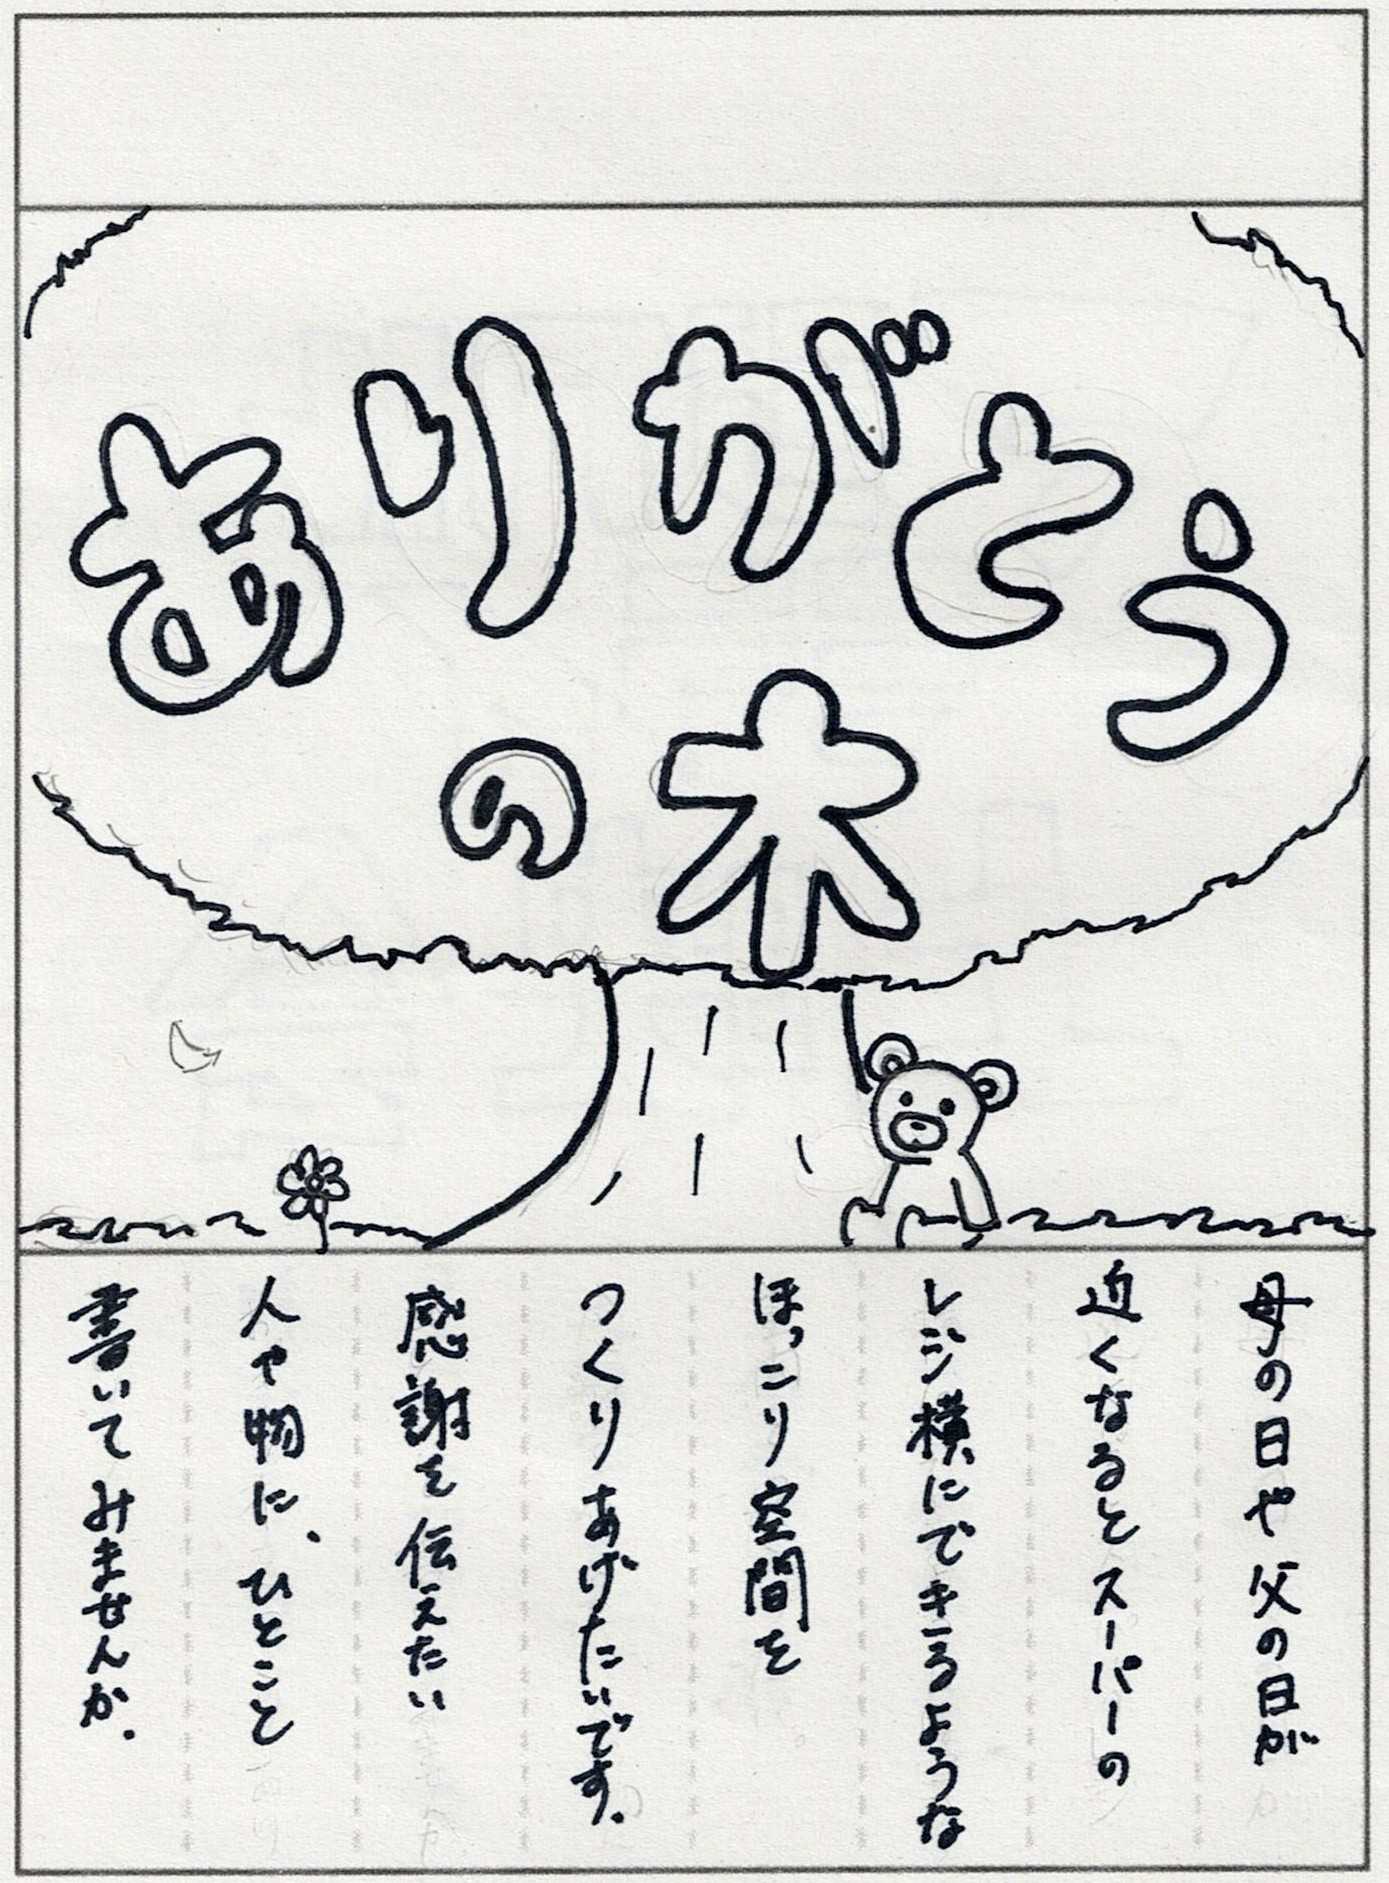 ありがとう
の木
母の日や父の日が
近くなるとスーパーの
レジ横にできるような
ほっこり空間を
つくりあげたいです.
感謝を伝えたい
人や物に、ひとこと
書いてみませんか.